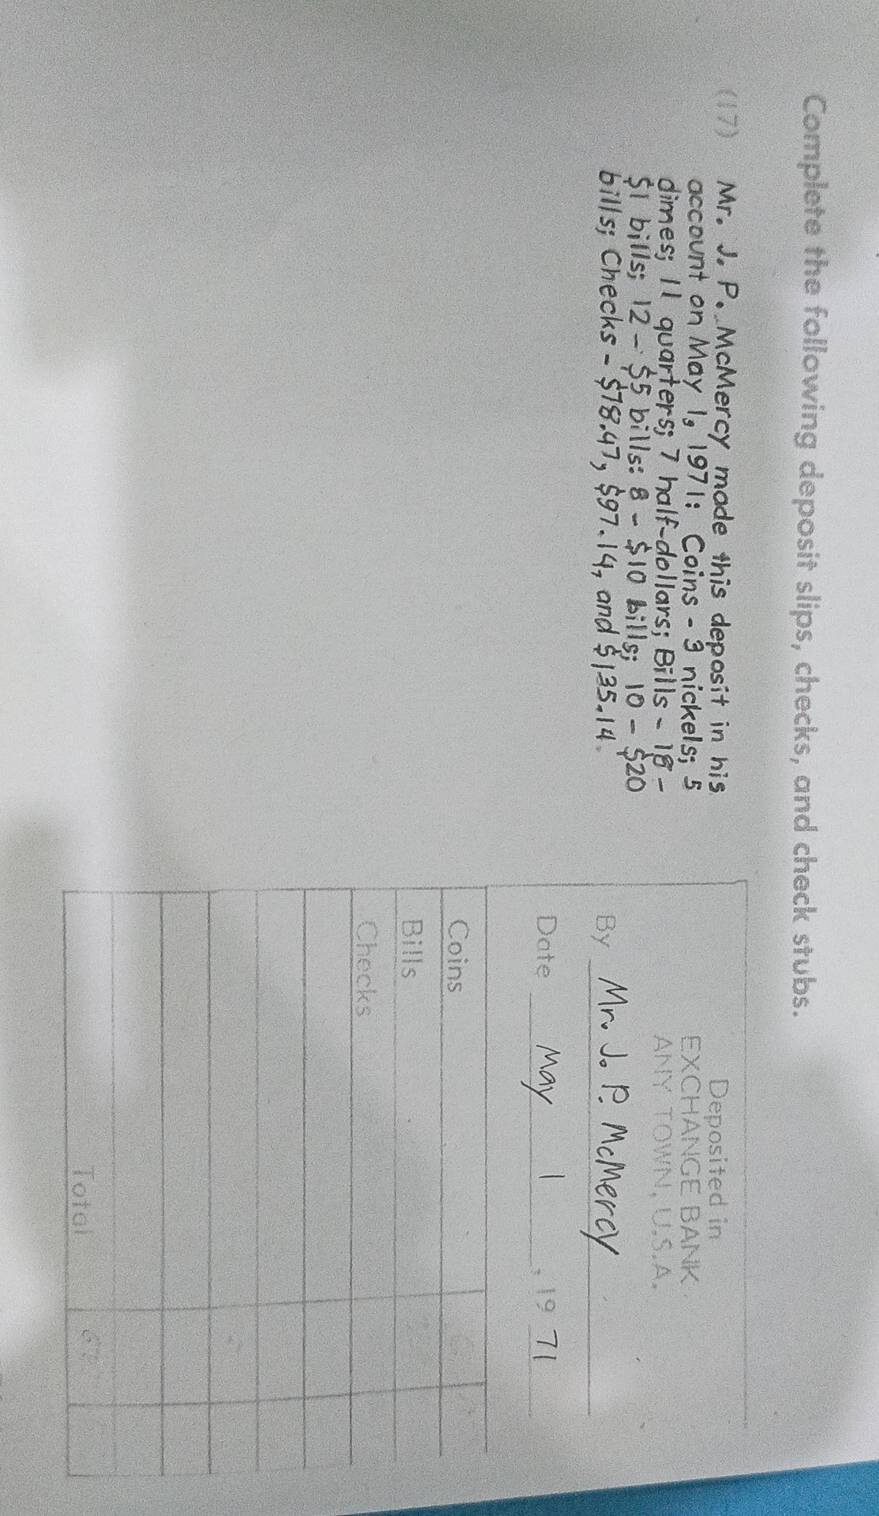 Complete the following deposit slips, checks, and check stubs.
(17) Mr. J. P. McMercy made this deposit in his
account on May 1, 1971: Coins - 3 nickels; 5
dimes; 11 quarters; 7 half-dollars; Bills - 18 -
$1 bills; 12 - $5 bills: 8 - $10 bills; 10 - $20
bills; Checks - $78.47, $97.14, and $135.14.
Deposited in
EXCHANGE BANK
ANY TOWN, U.S.A.
By Mr. J. P. McMercy
Date May 1, 1971
Coins
Bills
Checks
Total